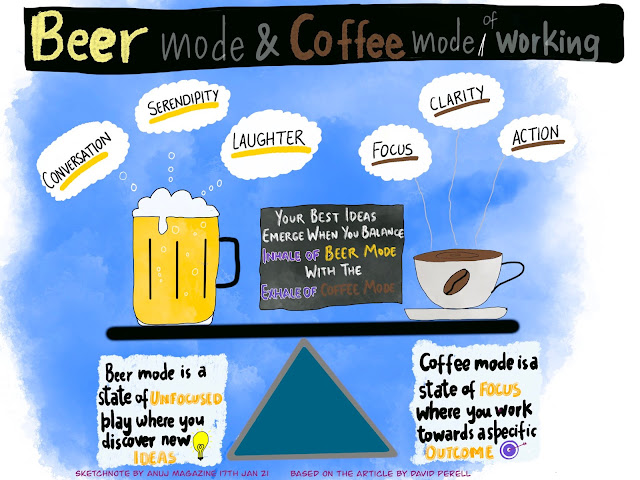 Beer mode & Coffee mode of working
CONVERSATION
SERENDIPITY
LAUGHTER
FOCUS
CLARITY
ACTION
YOUR BEST IDEAS
EMERGE WHEN YOU BALANCE
INHALE OF BEER MODE
WITH THE
EXHALE OF COFFEE MODE
Beer mode is a
state of UNFOCUSED
play where you
discover new
IDEAS
Coffee mode is a
state of FOCUS
where you work
towards a specific
OUTCOME
SKETCHNOTE BY ANUJ MAGAZINE 17TH JAN 21
BASED ON THE ARTICLE BY DAVID PERELL